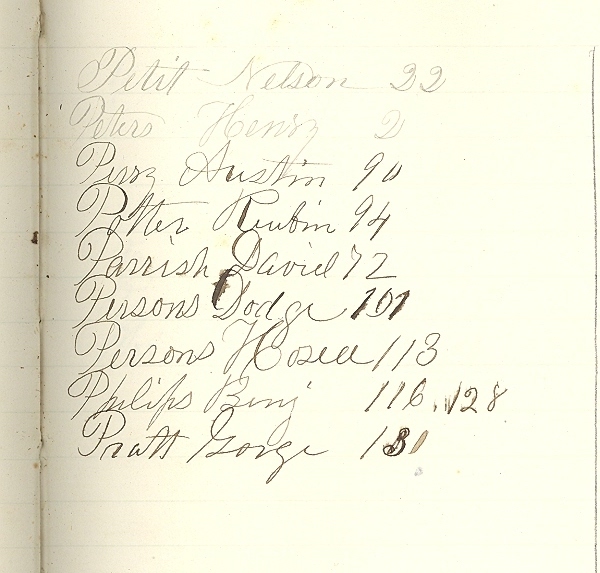 Petit Nelson 22
Peters Henry 2
Perry Austin 90
Potter Reubin 94
Parrish David 72
Persons Dodge 101
Persons Hosea 113
Philips Benj 116, 128
Pratt Gorge 131